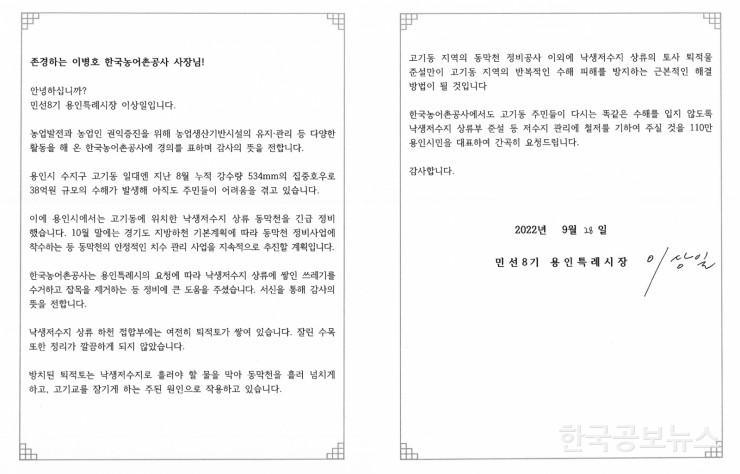 존경하는 이병호 한국농어촌공사 사장님!
안녕하십니까?
민선8기 용인특례시장 이상일입니다.
농업발전과 농업인 권익증진을 위해 농업생산기반시설의 유지·관리 등 다양한
활동을 해 온 한국농어촌공사에 경의를 표하며 감사의 뜻을 전합니다.
용인시 수지구 고기동 일대엔 지난 8월 누적 강수량 534mm의 집중호우로
38억원 규모의 수해가 발생해 아직도 주민들이 어려움을 겪고 있습니다.
이에 용인시에서는 고기동에 위치한 낙생저수지 상류 동막천을 긴급 정비
했습니다. 10월 말에는 경기도 지방하천 기본계획에 따라 동막천 정비사업에
착수하는 등 동막천의 안정적인 치수 관리 사업을 지속적으로 추진할 계획입니다.
한국농어촌공사는 용인특례시의 요청에 따라 낙생저수지 상류에 쌓인 쓰레기를
수거하고 잡목을 제거하는 등 정비에 큰 도움을 주셨습니다. 서신을 통해 감사의
뜻을 전합니다.
낙생저수지 상류 하천 접합부에는 여전히 퇴적토가 쌓여 있습니다. 잘린 수목
또한 정리가 깔끔하게 되지 않았습니다.
방치된 퇴적토는 낙생저수지로 흘러야 할 물을 막아 동막천을 흘러 넘치게
하고, 고기교를 잠기게 하는 주된 원인으로 작용하고 있습니다.
고기동 지역의 동막천 정비공사 이외에 낙생저수지 상류의 토사 퇴적물
준설만이 고기동 지역의 반복적인 수해 피해를 방지하는 근본적인 해결
방법이 될 것입니다
한국농어촌공사에서도 고기동 주민들이 다시는 똑같은 수해를 입지 않도록
낙생저수지 상류부 준설 등 저수지 관리에 철저를 기하여 주실 것을 110만
용인시민을 대표하여 간곡히 요청드립니다.
감사합니다.
2022년 9월 28일
민선8기 용인특례시장 이상일
한국공보뉴스